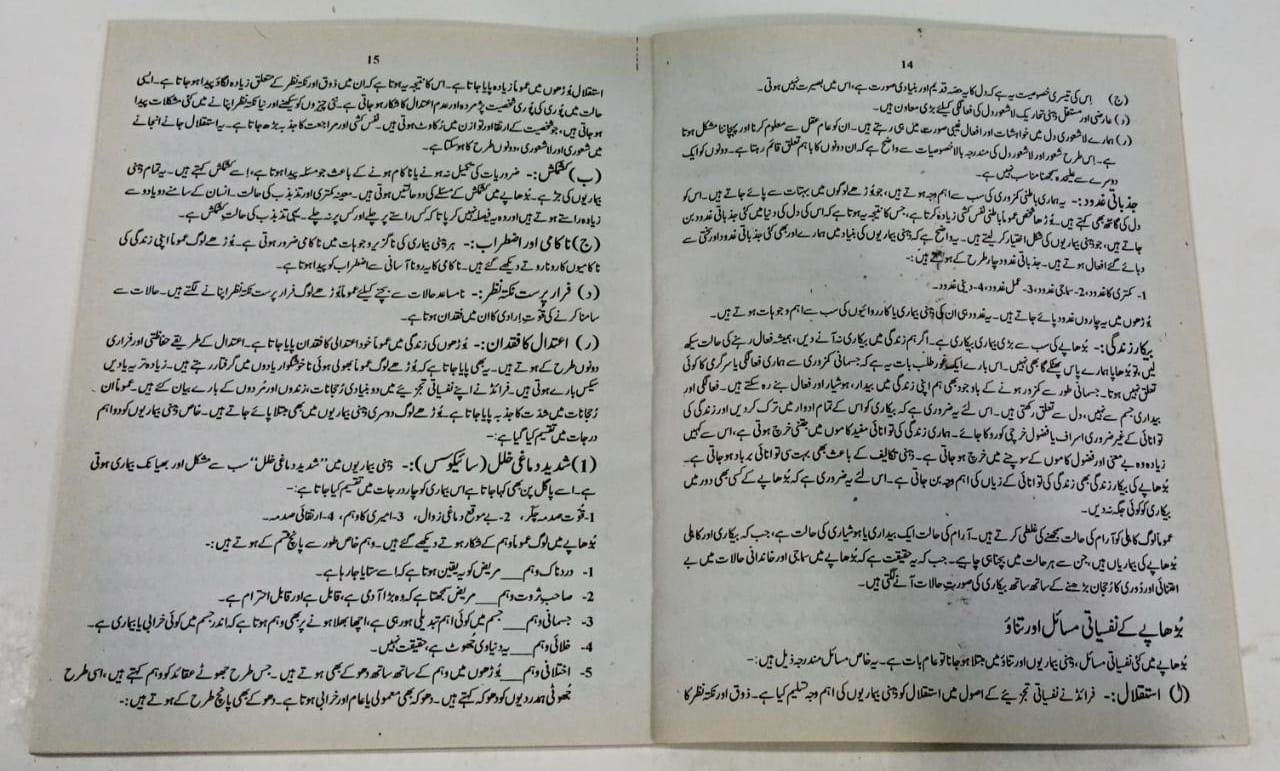 14
(ج) اِس کی تیسری خصوصیت یہ ہے کہ دل کا یہ حصّہ قدیم اور بنیادی صورت ہے، اس میں بصیرت نہیں ہوتی۔
(د) عارضی اور مستقل ذہنی تحاریک لاشعور دل کی فعالگی کیلئے بڑی معاون ہیں۔
(ر) ہمارے لاشعوری دل میں خواہشات اور افعال غیبی صورت میں ہی رہتے ہیں۔ ان کو عام عقل سے معلوم کرنا اور پہچاننا مشکل ہوتا
ہے۔ اِس طرح شعور اور لاشعور دل کی مندرجہ بالا خصوصیات سے واضح ہے کہ ان دونوں کا باہم تعلق قائم رہتا ہے۔ دونوں کو ایک
دوسرے سے علیٰحدہ سمجھنا مناسب نہیں ہے۔
جذباتی غدود:- یہ ہماری باطنی کمزوری کی سب سے اہم وجہ ہوتے ہیں، جو بُوڑھے لوگوں میں بہتات سے پائے جاتے ہیں۔ اس کو
دل کی گانٹھ بھی کہتے ہیں۔ بُوڑھا شخص عموماً باطنی نفس کشی زیادہ کرتا ہے، جس کا نتیجہ یہ ہوتا ہے کہ اس کی دل کی دنیا میں کئی جذباتی غدود بن
جاتے ہیں، جو ذہنی بیماریوں کی شکل اختیار کر لیتے ہیں۔ یہ واضح ہے کہ ذہنی بیماریوں کی بنیاد میں ہمارے اور بھی کئی جذباتی غدود اور سختی سے
دبائے گئے افعال ہوتے ہیں۔ جذباتی غدود چار طرح کے ہوتے ہیں:-
1- کمتری کا غدود، 2- سماجی غدود، 3- عمل غدود، 4- دینی غدود۔
بُوڑھوں میں یہ چاروں غدود پائے جاتے ہیں۔ یہ غدود ہی ان کی ذہنی بیماری یا کارروائیوں کی سب سے اہم وجوہات ہوتے ہیں۔
بیکار زندگی:- بُڑھاپے کی سب سے بڑی بیماری بیکاری ہے۔ اگر ہم زندگی میں بیکاری نہ آنے دیں، ہمیشہ فعال رہنے کی حالت سیکھ
لیں، تو بُڑھاپا ہمارے پاس پھٹکے گا بھی نہیں۔ اس بارے ایک غور طلب بات یہ ہے کہ جسمانی کمزوری سے ہماری فعالگی یا سرگرمی کا کوئی
تعلق نہیں ہوتا۔ جسمانی طور سے کمزور ہونے کے باوجود بھی ہم اپنی زندگی میں بیدار، ہوشیار اور فعال بنے رہ سکتے ہیں۔ فعالگی اور
بیداری جسم سے نہیں، دل سے تعلق رکھتی ہیں۔ اس لئے یہ ضروری ہے کہ بیکاری کو اس کے تمام ادوار میں ترک کر دیں اور زندگی کی
توانائی کے غیر ضروری اسراف یا فضول خرچی کو روکا جائے۔ ہماری زندگی کی توانائی مفید کاموں میں جتنی خرچ ہوتی ہے، اس سے کہیں
زیادہ وہ بے معنی اور فضول کاموں کے سوچنے میں خرچ ہو جاتی ہے۔ ذہنی تکالیف کے باعث بھی بہت سی توانائی برباد ہو جاتی ہے۔
بُڑھاپے کی بیکار زندگی بھی زندگی کی توانائی کے زیاں کی اہم وجہ بن جاتی ہے۔ اس لئے یہ ضروری ہے کہ بُڑھاپے کے کسی بھی دور میں
بیکاری کو کوئی جگہ نہ دیں۔
عموماً لوگ کاہلی کو آرام کی حالت سمجھنے کی غلطی کرتے ہیں۔ آرام کی حالت ایک بیداری یا ہوشیاری کی حالت ہے، جب کہ بیکاری اور کاہلی
بُڑھاپے کی بیماریاں ہیں، جن سے ہر حالت میں بچنا ہی چاہیے۔ جب کہ یہ حقیقت ہے کہ بُڑھاپے میں سماجی اور خاندانی حالات میں بے
اعتنائی اور دُوری کا رُجحان بڑھنے کے ساتھ ساتھ بیکاری کی صورتِ حالات آنے لگتی ہیں۔
بُڑھاپے کے نفسیاتی مسائل اور تناؤ
بُڑھاپے میں کئی نفسیاتی مسائل، ذہنی بیماریوں اور تناؤ میں مبتلا ہو جانا تو عام بات ہے۔ یہ خاص مسائل مندرجہ ذیل ہیں:-
(ا) استقلال:- فرائڈ نے نفسیاتی تجزیئے کے اصول میں استقلال کو ذہنی بیماریوں کی اہم وجہ تسلیم کیا ہے۔ ذوق اور نکتۂ نظر کا
15
استقلال بُوڑھوں میں عموماً زیادہ پایا جاتا ہے۔ اس کا نتیجہ یہ ہوتا ہے کہ ان میں ذوق اور نکتۂ نظر کے متعلق زیادہ لگاؤ پیدا ہو جاتا ہے۔ ایسی
حالت میں پُوری کی پُوری شخصیت پژمردہ اور عدم اعتدال کا شکار ہو جاتی ہے۔ نئی چیزوں کو سیکھنے اور نیا نکتۂ نظر اپنانے میں کئی مشکلات پیدا
ہو جاتی ہیں، جو شخصیت کے ارتقا اور توازن میں رُکاوٹ ہوتی ہیں۔ نفس کشی اور مراجعت کا جذبہ بڑھ جاتا ہے۔ یہ استقلال جانے انجانے
میں شعوری اور لاشعوری، دونوں طرح کا ہو سکتا ہے۔
(ب) کشمکش:- ضروریات کی تکمیل نہ ہونے یا ناکام ہونے کے باعث جو مسئلہ پیدا ہوتا ہے، اِسے کشمکش کہتے ہیں۔ یہ تمام ذہنی
بیماریوں کی جڑ ہے۔ بُڑھاپے میں کشمکش کے مسئلے کی دو حالتیں ہوتی ہیں۔ صیغۂ کمتری اور تذبذب کی حالت۔ انسان کے سامنے دو یا دو سے
زیادہ راستے ہوتے ہیں اور وہ یہ فیصلہ نہیں کر پاتا کہ کس راستے پر چلے اور کس پر نہ چلے۔ یہی تذبذب کی حالت کشمکش ہے۔
(ج) ناکامی اور اضطراب:- ہر ذہنی بیماری کی ناگزیر وجوہات میں ناکامی ضرور ہوتی ہے۔ بُوڑھے لوگ عموماً اپنی زندگی کی
ناکامیوں کا رونا روتے دیکھے گئے ہیں۔ ناکامی کا یہ رونا آسانی سے اضطراب کو پیدا ہوتا ہے۔
(د) فرار پرست نکتۂ نظر:- نامساعد حالات سے بچنے کیلئے عموماً بُوڑھے لوگ فرار پرست نکتۂ نظر اپنانے لگتے ہیں۔ حالات سے
سامنا کرنے کی قوتِ ارادی کا ان میں فقدان ہوتا ہے۔
(ر) اعتدال کا فقدان:- بُوڑھوں کی زندگی میں عموماً خود اعتدالی کا فقدان پایا جاتا ہے۔ اعتدال کے طریقے حفاظتی اور فراری
دونوں طرح کے ہوتے ہیں۔ یہ بھی پایا جاتا ہے کہ بُوڑھے لوگ عموماً بھولی ہوئی ناخوشگوار یادوں میں گرفتار رہتے ہیں۔ زیادہ تر یہ یادیں
سیکس بارے ہوتی ہیں۔ فرائڈ نے اپنے نفسیاتی تجزیئے میں دو بنیادی رُجحانات، زندوں اور مُردوں کے بارے بیان کئے ہیں۔ عموماً ان
رُجحانات میں شدّت کا جذبہ پایا جاتا ہے۔ بُوڑھے لوگ دوسری ذہنی بیماریوں میں بھی مبتلا پائے جاتے ہیں۔ خاص ذہنی بیماریوں کو دو اہم
درجات میں تقسیم کیا گیا ہے:-
(1) شدید دماغی خلل (سائیکوسس):- ذہنی بیماریوں میں ”شدید دماغی خلل“ سب سے مشکل اور بھیانک بیماری ہوتی
ہے۔ اسے پاگل پن بھی کہا جاتا ہے اس بیماری کو چار درجات میں تقسیم کیا جاتا ہے:-
1- قُوّت صدمہ چکّر، 2- بے موقع دماغی زوال، 3- امیری کا وہم، 4- ارتقائی صدمہ۔
بُڑھاپے میں لوگ عموماً وہم کے شکار ہوتے دیکھے گئے ہیں۔ وہم خاص طور سے پانچ قسم کے ہوتے ہیں:-
1- دردناک وہم ___ مریض کو یہ یقین ہوتا ہے کہ اسے ستایا جا رہا ہے۔
2- صاحبِ ثروت وہم ___ مریض سمجھتا ہے کہ وہ بڑا آدمی ہے، قابل ہے اور قابلِ احترام ہے۔
3- جسمانی وہم ___ جسم میں کوئی اہم تبدیلی ہو رہی ہے، اچھا بھلا ہونے پر بھی وہم ہوتا ہے کہ اندر جسم میں کوئی خرابی یا بیماری ہے۔
4- خلائی وہم ___ یہ دنیاوی جُھوٹ ہے، حقیقت نہیں۔
5- اختلافی وہم ___ بُوڑھوں میں وہم کے ساتھ ساتھ دھوکے بھی ہوتے ہیں۔ جس طرح جھوٹے عقائد کو وہم کہتے ہیں، اسی طرح
جُھوٹی ہمدردیوں کو دھوکہ کہتے ہیں۔ دھوکہ بھی معمولی یا عام اور خرابی ہوتا ہے۔ دھوکے بھی پانچ طرح کے ہوتے ہیں:-